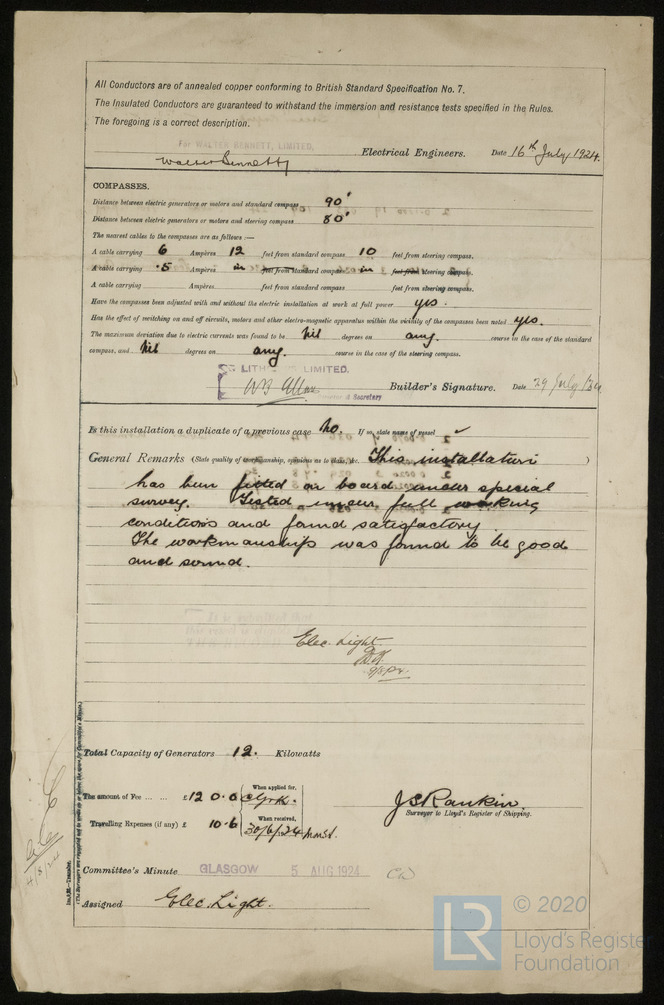 All Conductors are of annealed copper conforming to British Standard Specification No. 7.
The Insulated Conductors are guaranteed to withstand the immersion and resistance tests specified in the Rules.
The foregoing is a correct description.
For WALTER BENNETT, LIMITED,
Walter Bennett Electrical Engineers. Date 16th July 1924.
COMPASSES.
Distance between electric generators or motors and standard compass 90'
Distance between electric generators or motors and steering compass 80'
The nearest cables to the compasses are as follows :—
A cable carrying 6 Ampères 12 feet from standard compass 10 feet from steering compass.
A cable carrying .5 Ampères in feet from standard compass in feet from steering compass.
A cable carrying Ampères feet from standard compass feet from steering compass.
Have the compasses been adjusted with and without the electric installation at work at full power yes.
Has the effect of switching on and off circuits, motors and other electro-magnetic apparatus within the vicinity of the compasses been noted yes.
The maximum deviation due to electric currents was found to be Nil degrees on any. course in the case of the standard
compass, and Nil degrees on any. course in the case of the steering compass.
LIMITED.
Builder's Signature. Date 29 July 1924
& Secretary
Is this installation a duplicate of a previous case No. If so, state name of vessel ✓
General Remarks (State quality of workmanship, opinions as to class, &c. This installation )
has been fitted on board under special
survey. Tested under full working
conditions and found satisfactory.
The workmanship was found to be good
and sound.
Elec. Light
Total Capacity of Generators 12. Kilowatts
The amount of Fee ... ... £12 0.0
When applied for,
Travelling Expenses (if any) £ 10.6
When received,
30/6/24
J S Rankin.
Surveyor to Lloyd's Register of Shipping.
Committee's Minute GLASGOW 5 AUG 1924
Assigned Elec. Light.
4/8/24
LR
© 2020
Lloyd's Register
Foundation